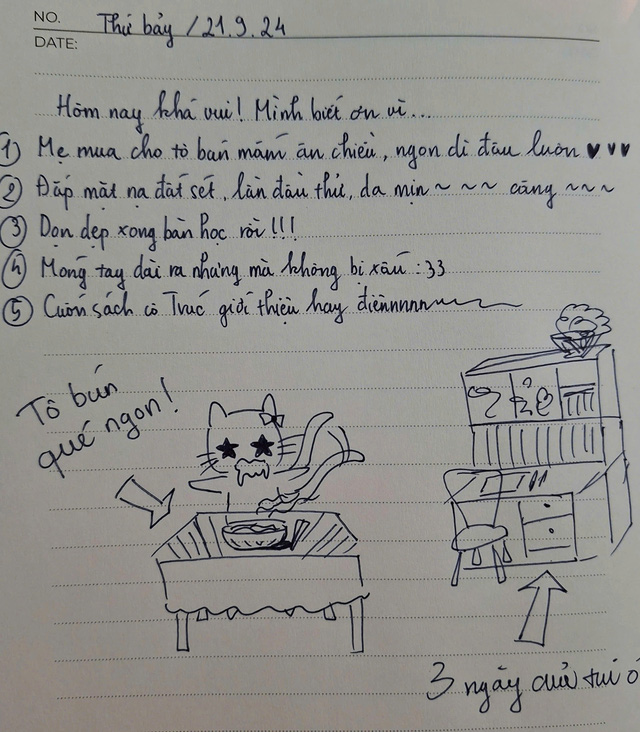 NO. Thứ bảy / 21.9.24
DATE:
Hôm nay khá vui! Mình biết ơn vì...
① Mẹ mua cho tô bún mắm ăn chiều, ngon dì đâu luôn ♥♥♥
② Đắp mặt nạ đất sét, lần đầu thử, da mịn ~ ~ ~ căng ~ ~ ~
③ Dọn dẹp xong bàn học rồi !!!
④ Móng tay dài ra nhưng mà không bị xấu :33
⑤ Cuốn sách cô Trúc giới thiệu hay điênnnnn
Tô bún
qué ngon!
3 ngày của tui ó